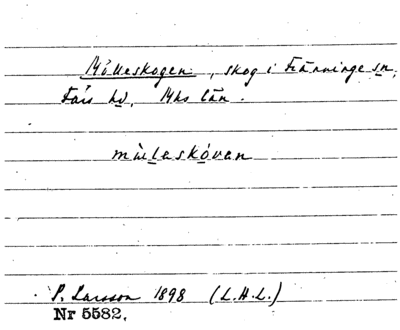 Mölleskogen, skog i Tranninge sn,
Färs hd, Mhs län.
mɨ̀lɑskóvan
P. Larsson 1898 (L.H.L.)
Nr 5582.